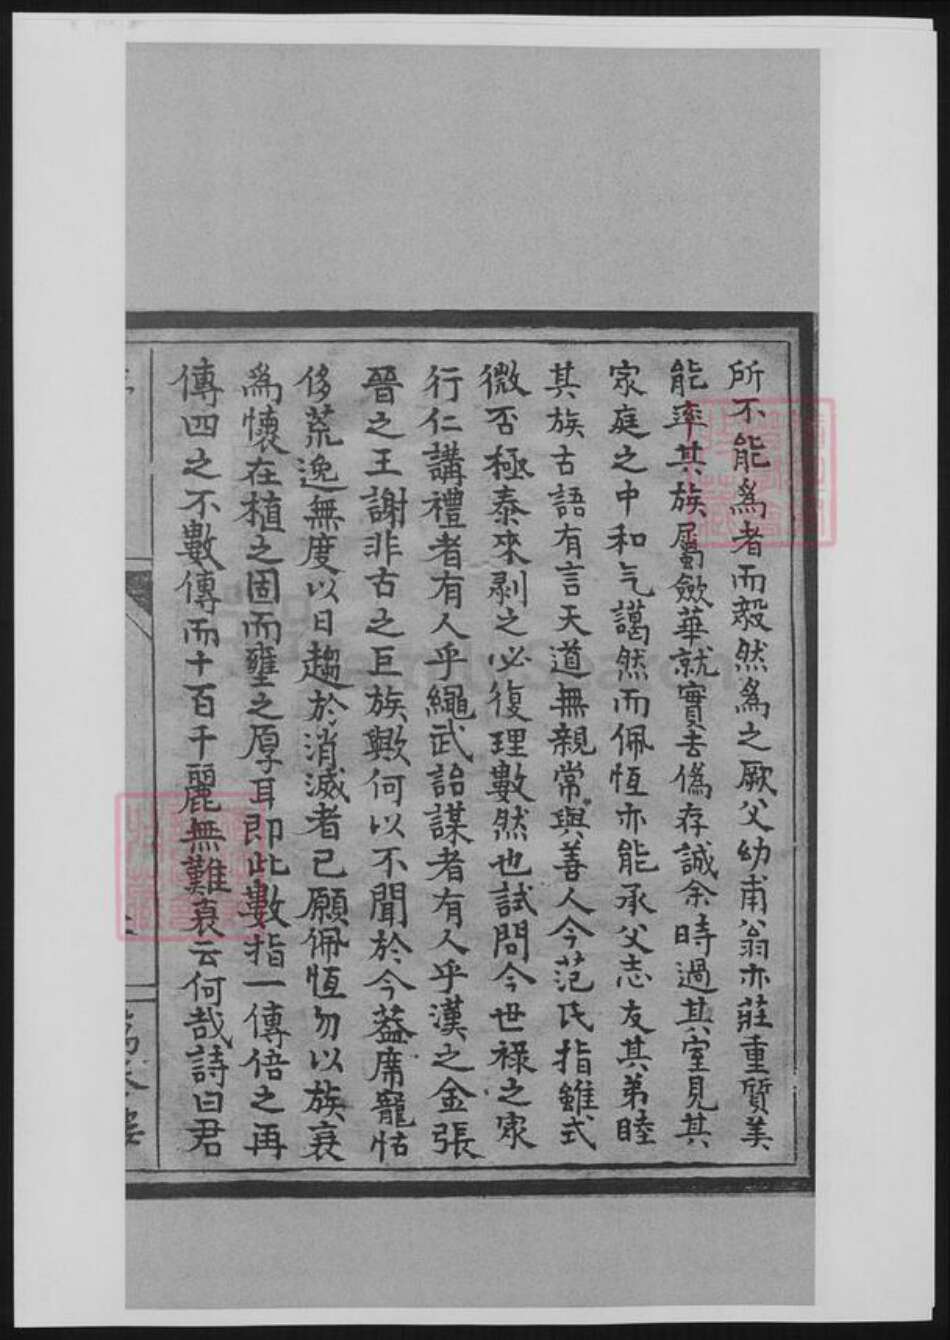 所不能爲者而毅然爲之厥父幼甫翁亦莊重質美
能率其族屬歛華就實去僞存誠余時過其室見其
家庭之中和气藹然而佩恆亦能承父志友其弟睦
其族古語有言天道無親常與善人今范氏指雖式
微否極泰來剥之必復理數然也試問今世祿之家
行仁講禮者有人乎繩武詒謀者有人乎漢之金張
晉之王謝非古之巨族歟何以不聞於今葢席寵怙
侈荒逸無度以日趨於消滅者已願佩恆勿以族衰
爲懷在植之固而壅之厚耳即此數指一傳倍之再
傳四之不數傳而十百千麗無難衰云何哉詩曰君